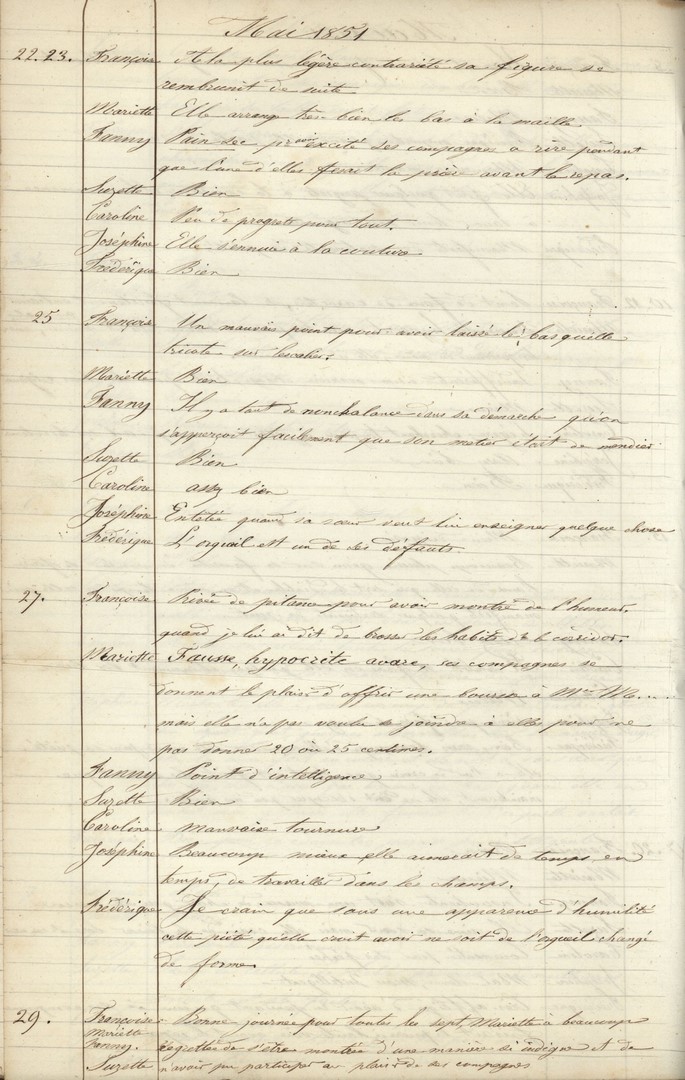 Mai 1851
22. 23. Françoise A la plus légère contrariété sa figure se
rembrunit de suite
Mariette Elle arrange très bien les bas à la maille
Fanny Pain sec pr avoir excité ses compagnes a rire pendant
que l'une d'elles faisait la prière avant le repas.
Suzette Bien
Caroline Peu de progrets pour tout.
Joséphine Elle s'ennuie à la couture
Frédérique Bien
25 Françoise Un mauvais point pour avoir laissé le bas qu'elle
tricote sur l'escalier.
Mariette Bien
Fanny Il y a tant de nonchalance dans sa démarche qu'on
s'apperçoit facilement que son metier était de mendier
Suzette Bien
Caroline assez bien
Joséphine Entetée quand sa sœur veut lui enseigner quelque chose
Frédérique L'orgueil est un de ses défauts
27. Françoise Privée de pitance pour avoir montré de l'humeur,
quand je lui ai dit de brosser les habits de
Mariette Fausse, hypocrite avare, ses compagnes se
donnent le plaisir d'offrir une bourse à Mme
mais elle n'a pas voulu se joindre à elle pour ne
pas donner 20 ou 25 centimes.
Fanny Point d'intelligence
Suzette Bien
Caroline mauvaise tournure
Joséphine Beaucoup mieux elle aimerait de temps en
temps, de travailler dans les champs.
Frédérique Je crain que sous une apparence d'humilité
cette piété qu'elle croit avoir ne soit de l'orgueil changé
de forme.
29. Françoise Bonne journée pour toutes les sept, Mariette à beaucoup
Mariette
Fanny. regrettée de s'être montrée d'une manière si indigne et de
Suzette n'avoir pu participer au plaisir de ses compagnes